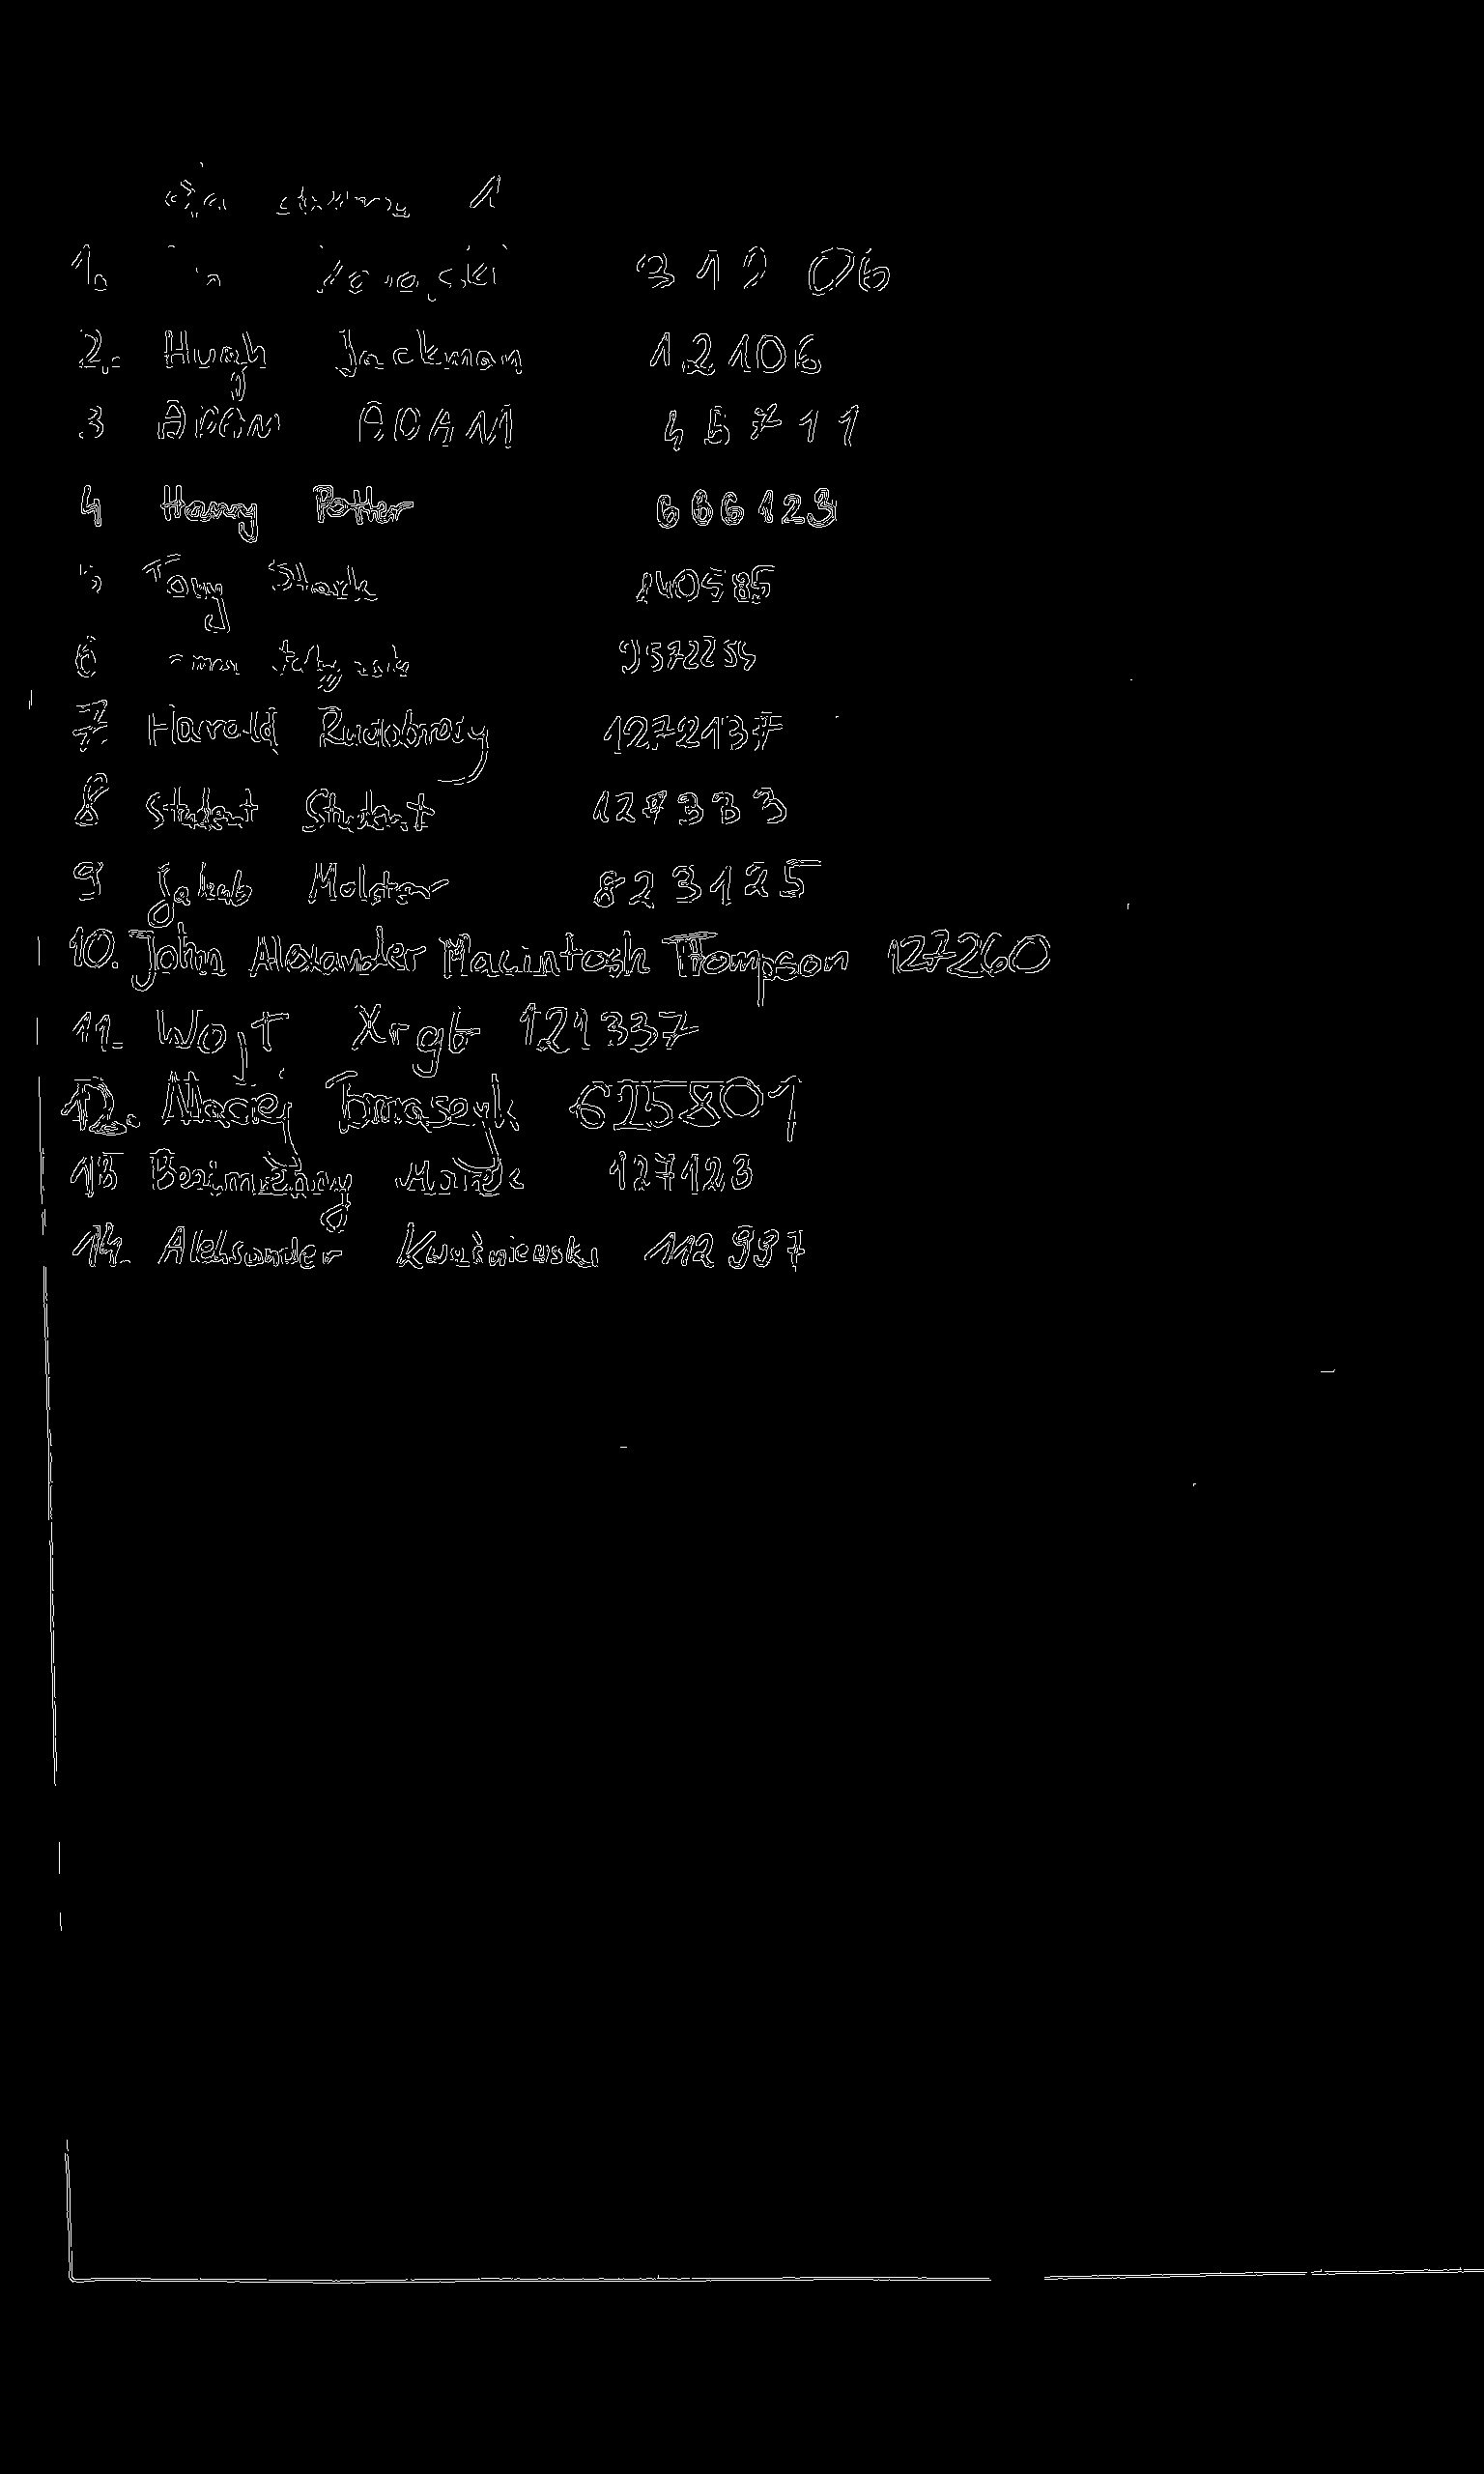 1
1. 3 1 2 06
2. Hugh Jackman 12106
3 ADAM ADAM 45711
4 Harry Potter 666123
5 Tony Stark 140585
6 9572254
7 Harold 1272137
8 Student Student 127333
9 Jakub Molster 823125
10. John Alexander Macintosh Thompson 127260
11. Wojt Xrgb 121337
12. Maciej Tomaseyk 625801
13 Bezimienny Marek 127123
14. Aleksander Kwaśniewski 112997